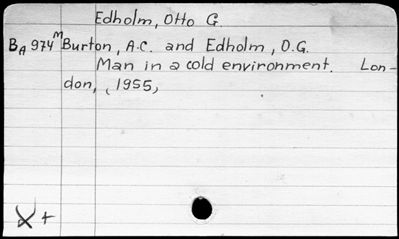 Edholm, Otto G.
BA 974M Burton, A.C. and Edholm, O.G.
Man in a cold environment. Lon-
don, (1955)